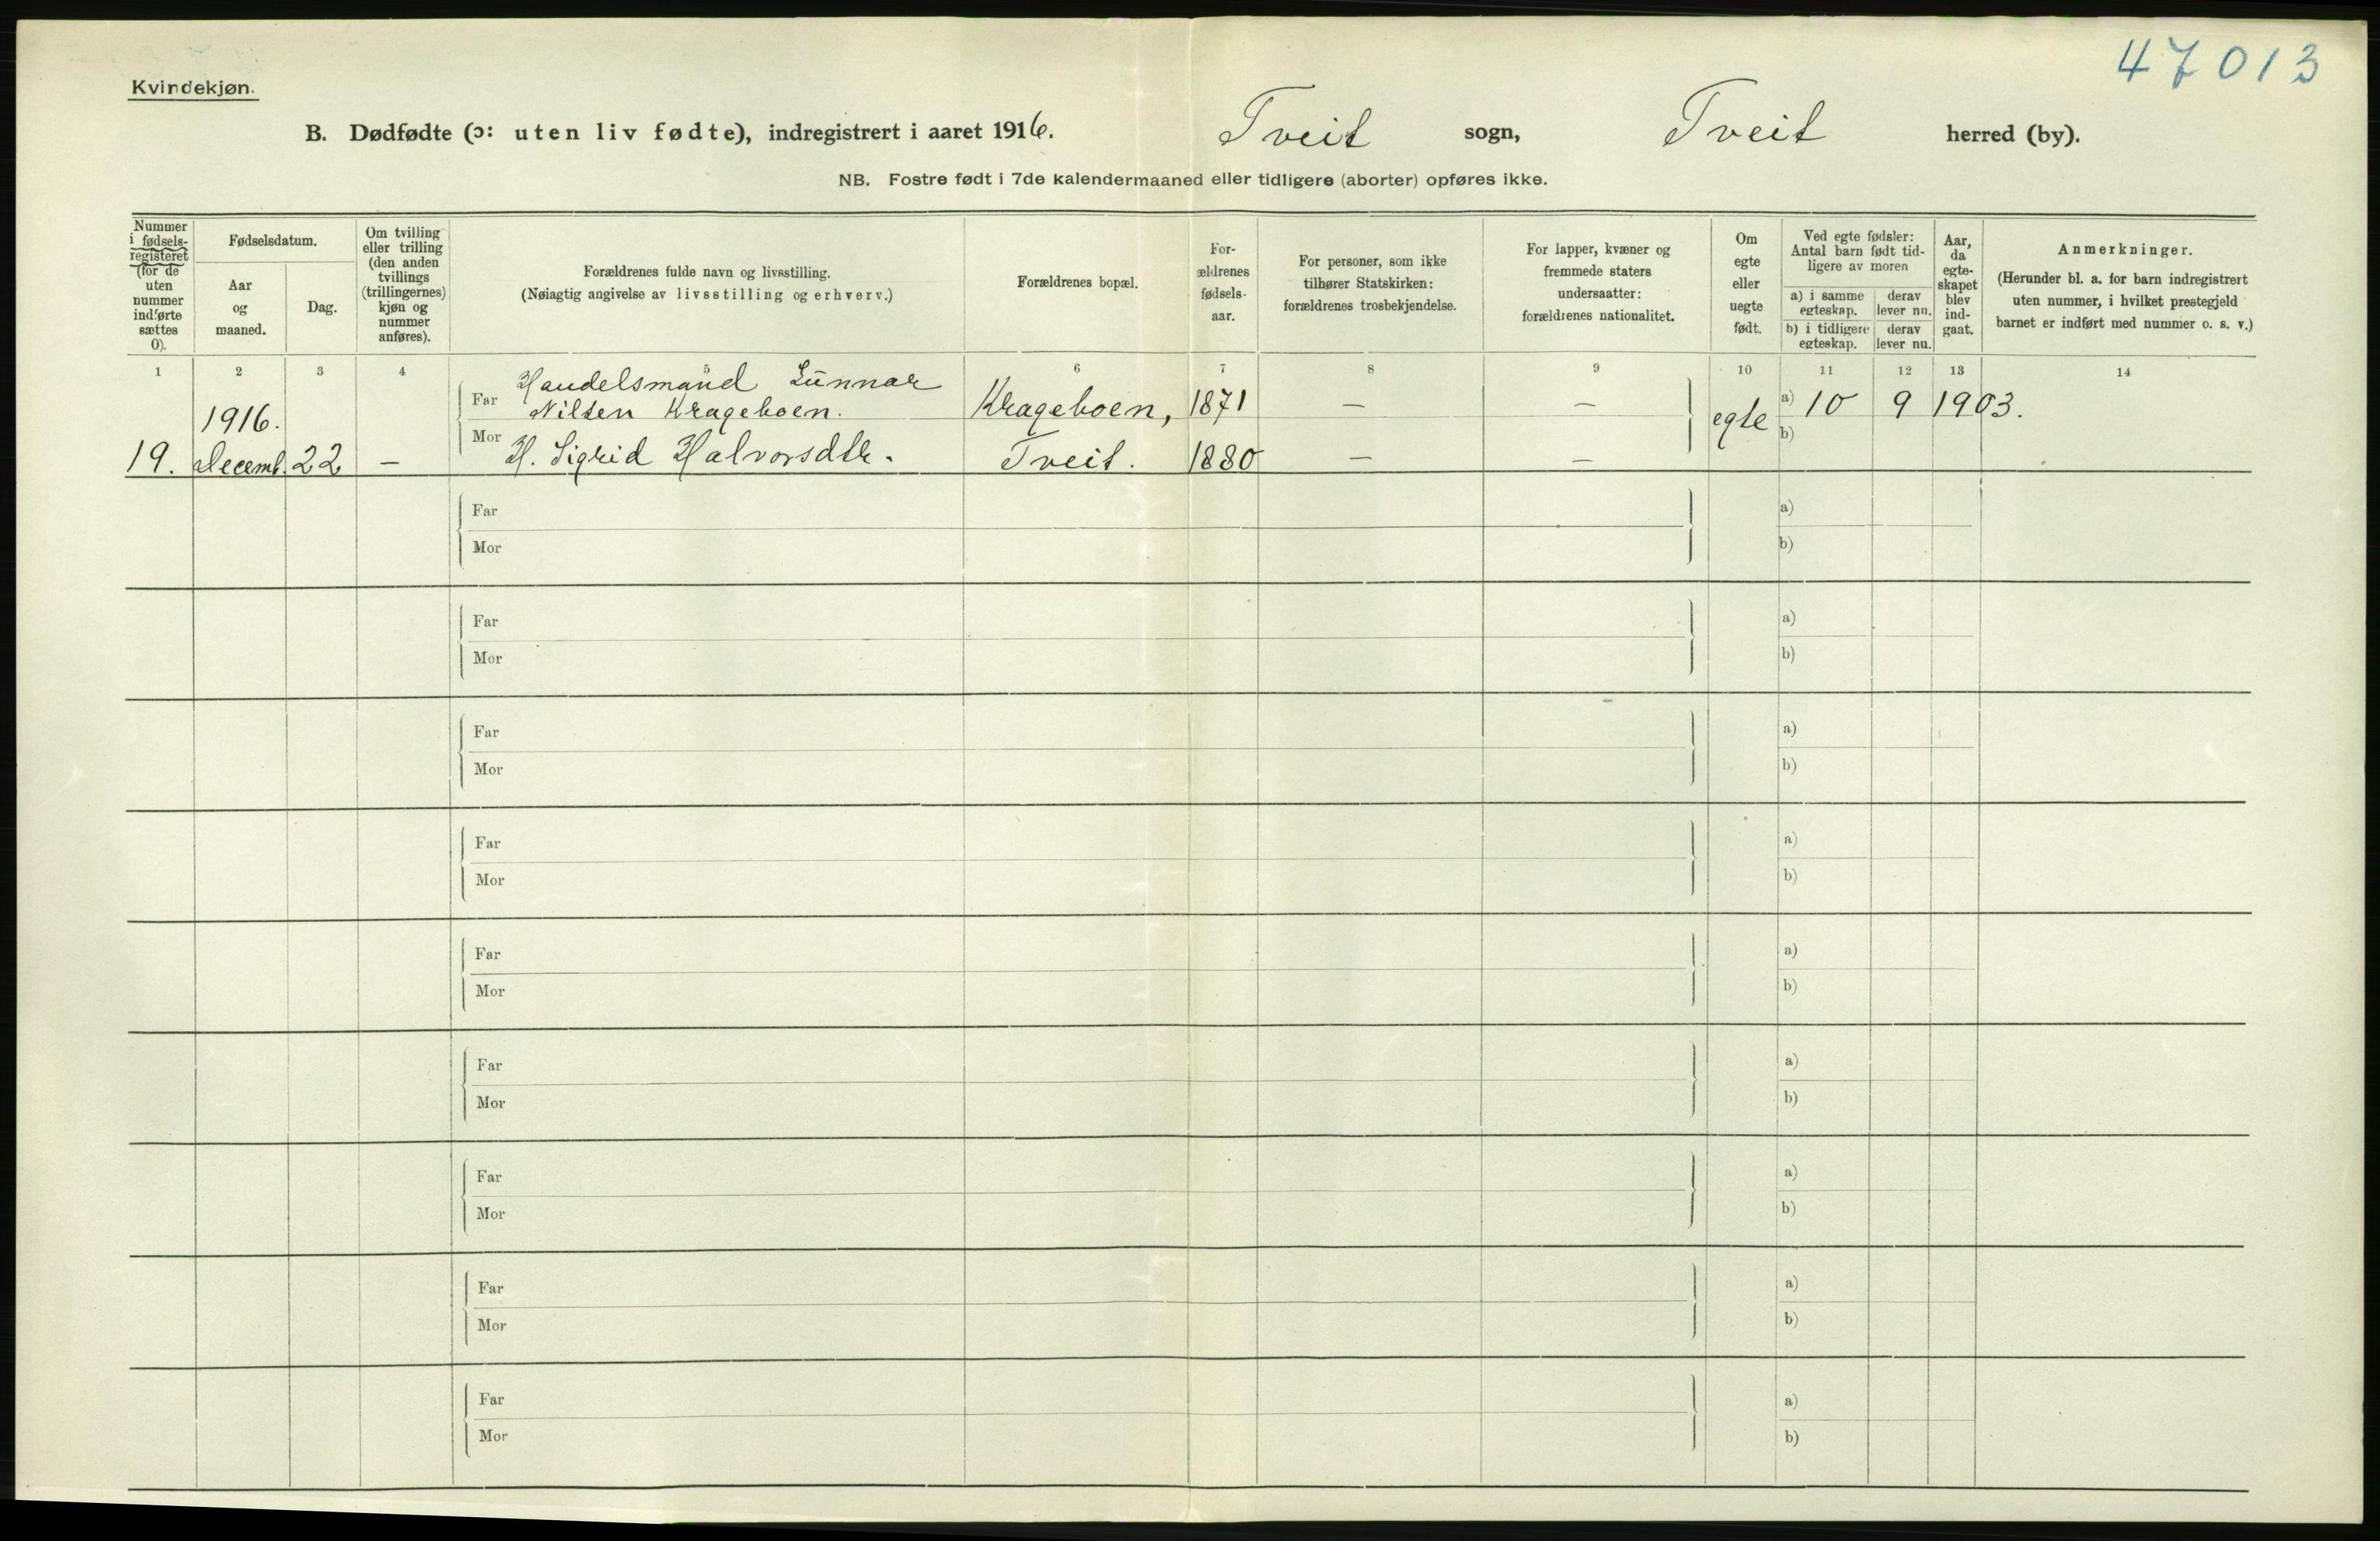 47013
Kvindekjøn.
B. Dødfødte (ɔ: uten liv fødte), indregistrert i aaret 1916. Tveit sogn, Tveit herred (by).
NB. Fostre født i 7de kalendermaaned eller tidligere (aborter) opføres ikke.
Nummer
i fødsels-
registeret
(for de
uten
nummer
indførte
sættes
0).
Fødselsdatum.
Aar
og
maaned.
Dag.
Om tvilling
eller trilling
(den anden
tvillings
(trillingernes)
kjøn og
nummer
anføres).
Forældrenes fulde navn og livsstilling.
(Nøiagtig angivelse av livsstilling og erhverv.)
Forældrenes bopæl.
For-
ældrenes
fødsels-
aar.
For personer, som ikke
tilhører Statskirken:
forældrenes trosbekjendelse.
For lapper, kvæner og
fremmede staters
undersaatter:
forældrenes nationalitet.
Om
egte
eller
uegte
født.
Ved egte fødsler:
Antal barn født tid-
ligere av moren
a) i samme
egteskap.
derav
lever nu.
b) i tidligere
egteskap.
derav
lever nu.
Aar,
da
egte-
skapet
blev
ind-
gaat.
Anmerkninger.
(Herunder bl. a. for barn indregistrert
uten nummer, i hvilket prestegjeld
barnet er indført med nummer o. s. v.)
1 2 3 4 6 7 8 9 10 11 12 13 14
Handelsmand Gunnar
Far Nilsen Krageboen. Krageboen, 1871 — — a) 10 9 1903.
1916. egte
Mor H. Sigrid Halvorsdtr. b)
19. Decemb. 22 — Tveit. 1880 — —
Far a)
Mor b)
Far a)
Mor b)
Far a)
Mor b)
Far a)
Mor b)
Far a)
Mor b)
Far a)
Mor b)
Far a)
Mor b)
Far a)
Mor b)
Far a)
Mor b)